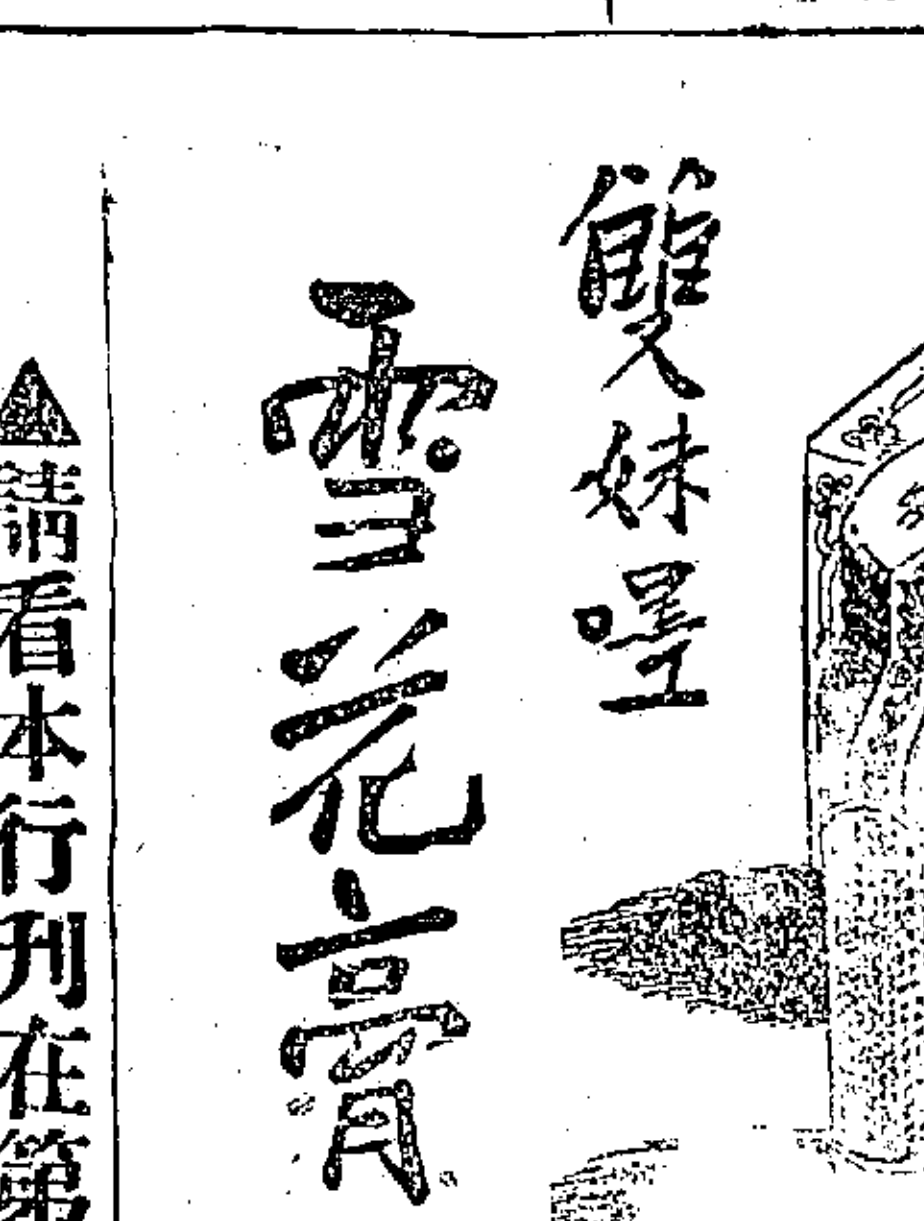 雙妹嘜
雪花膏
▲請看本行刊在第